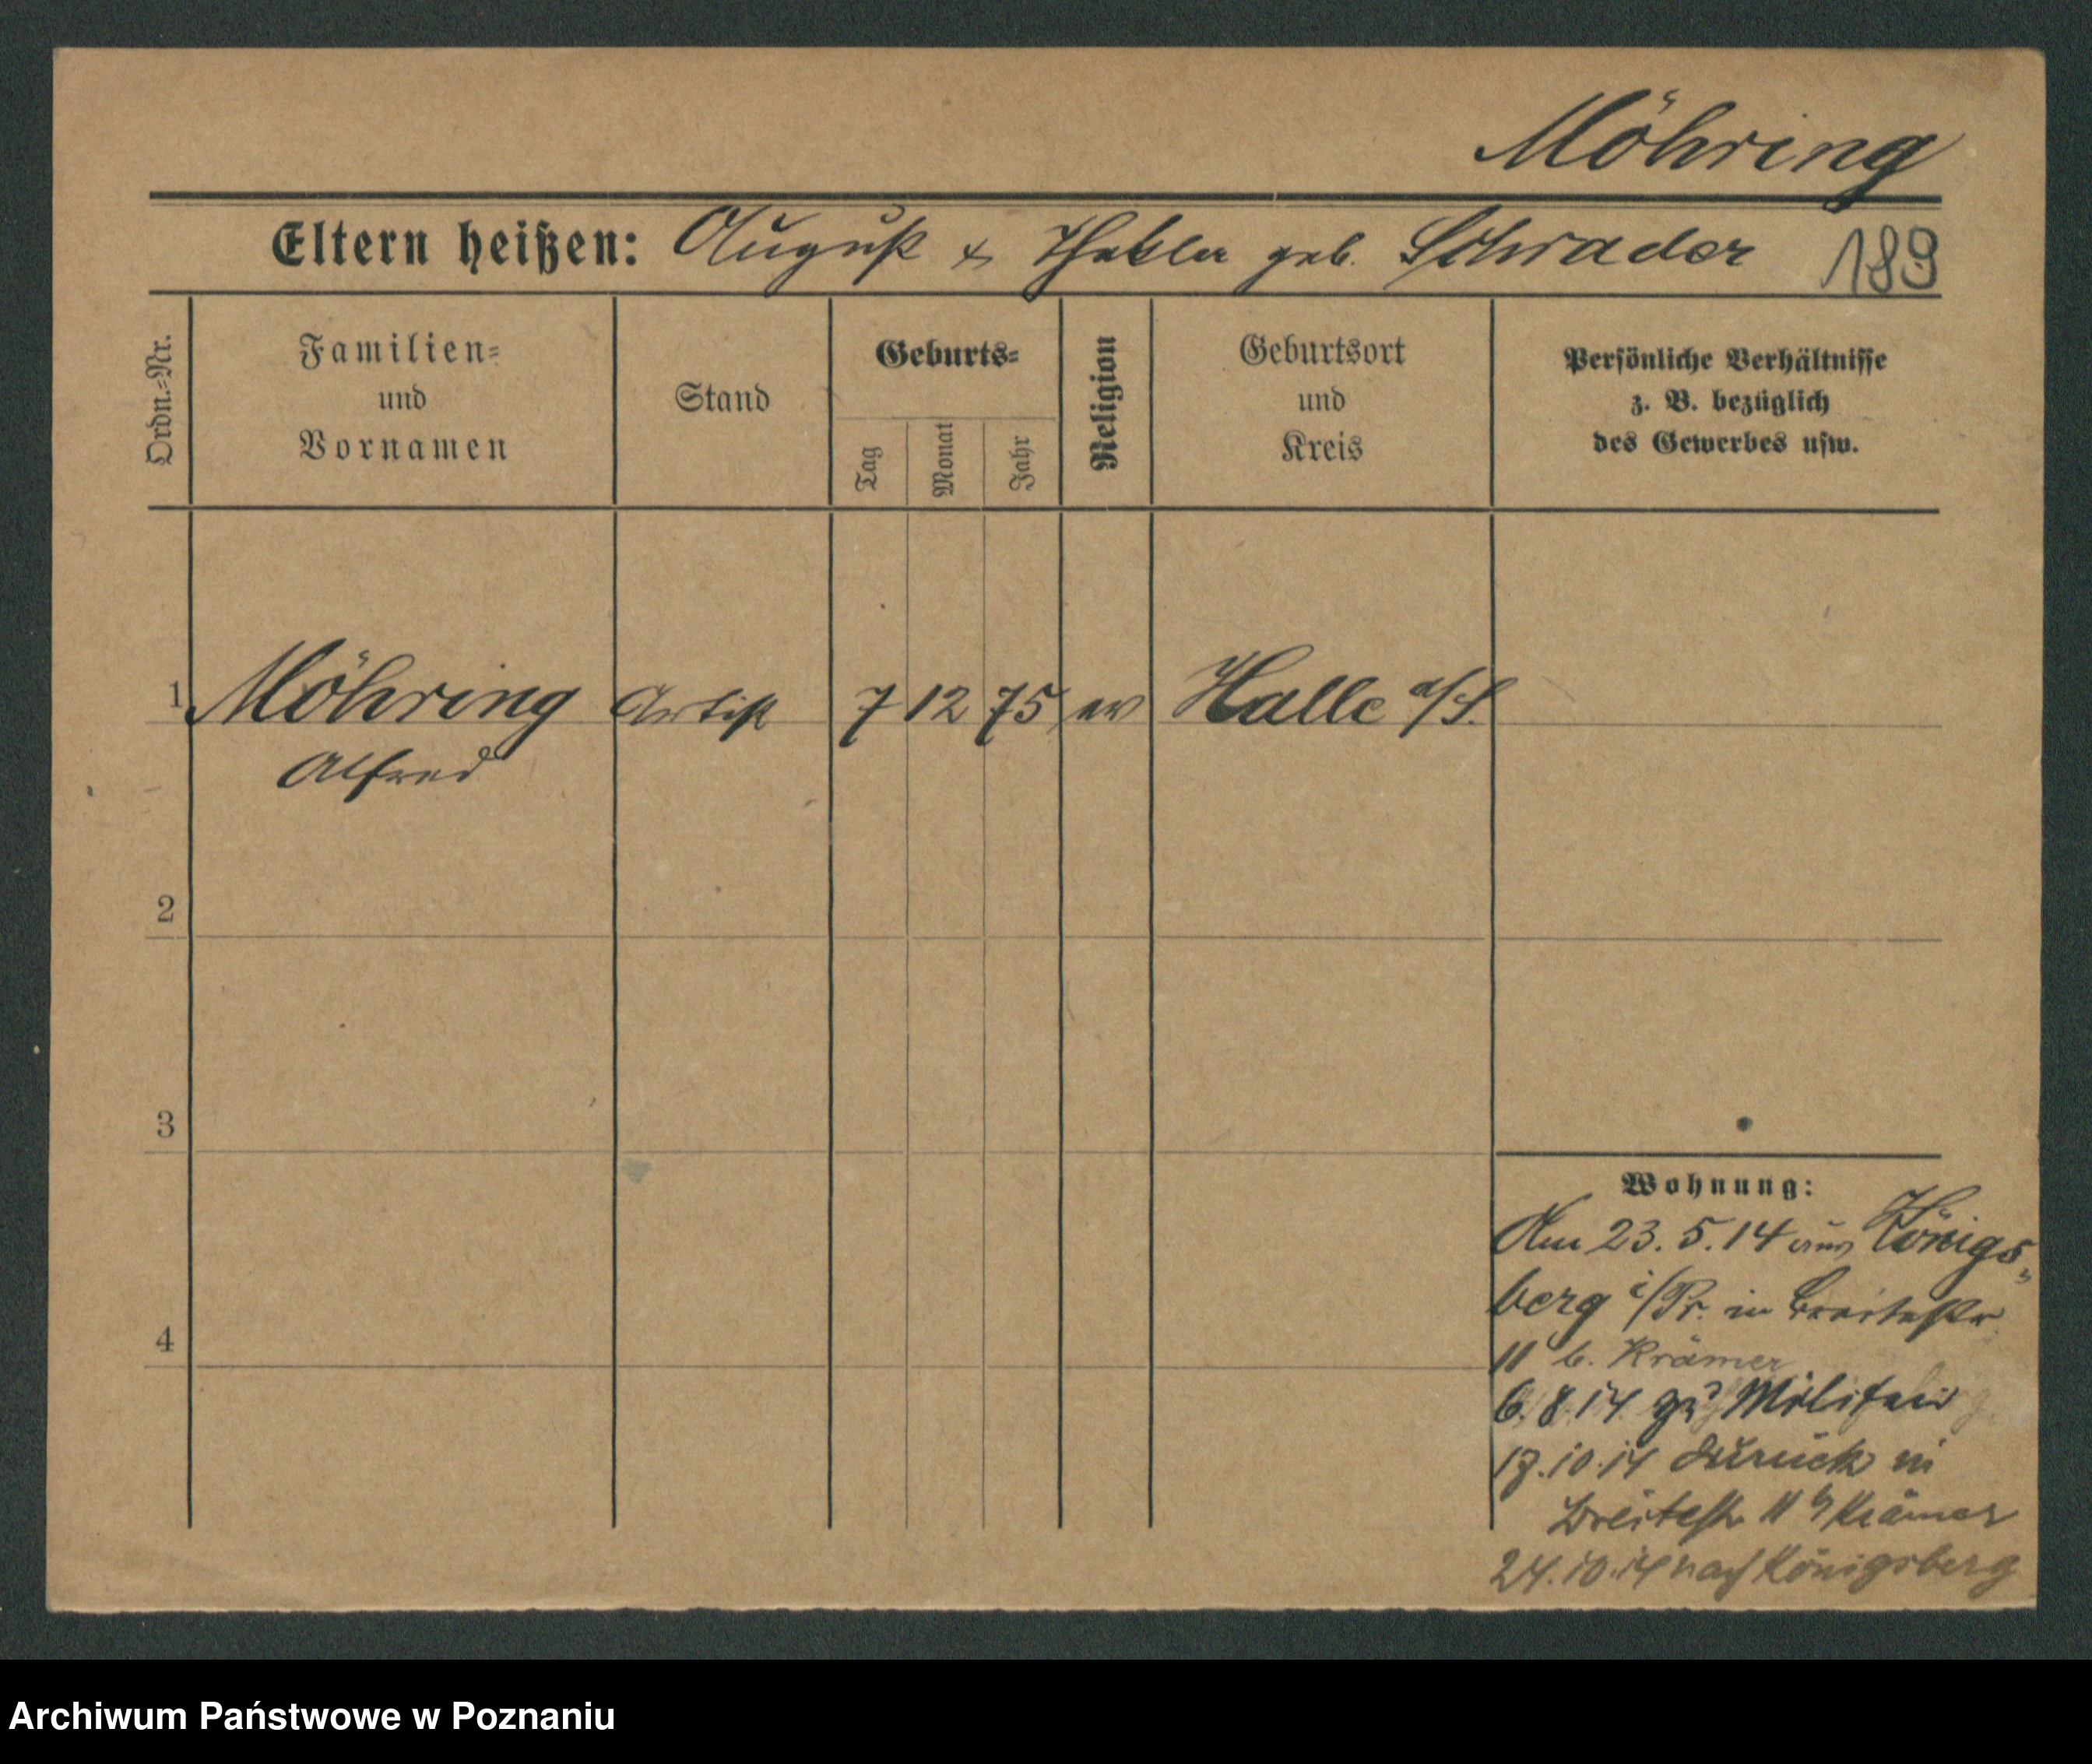 Möhring
Eltern heißen: August & Thekla geb. Schrader 189
Ordn.=Nr.
Familien=
und
Vornamen
Stand
Geburts=
Tag
Monat
Jahr
Religion
Geburtsort
und
Kreis
Persönliche Verhältnisse
z. B. bezüglich
des Gewerbes usw.
1 Möhring Artist 7 12 75 ev Halle a/S.
Alfred
2
3
4
Wohnung:
Am 23.5.14 aus Königs=
berg i/Pr. in Breitestr.
11 b. Krämer
6.8.14 zu Militair
17.10.14 zurück in
Breitestr 11 b/Krämer
24.10.14 nach Königsberg
Archiwum Państwowe w Poznaniu